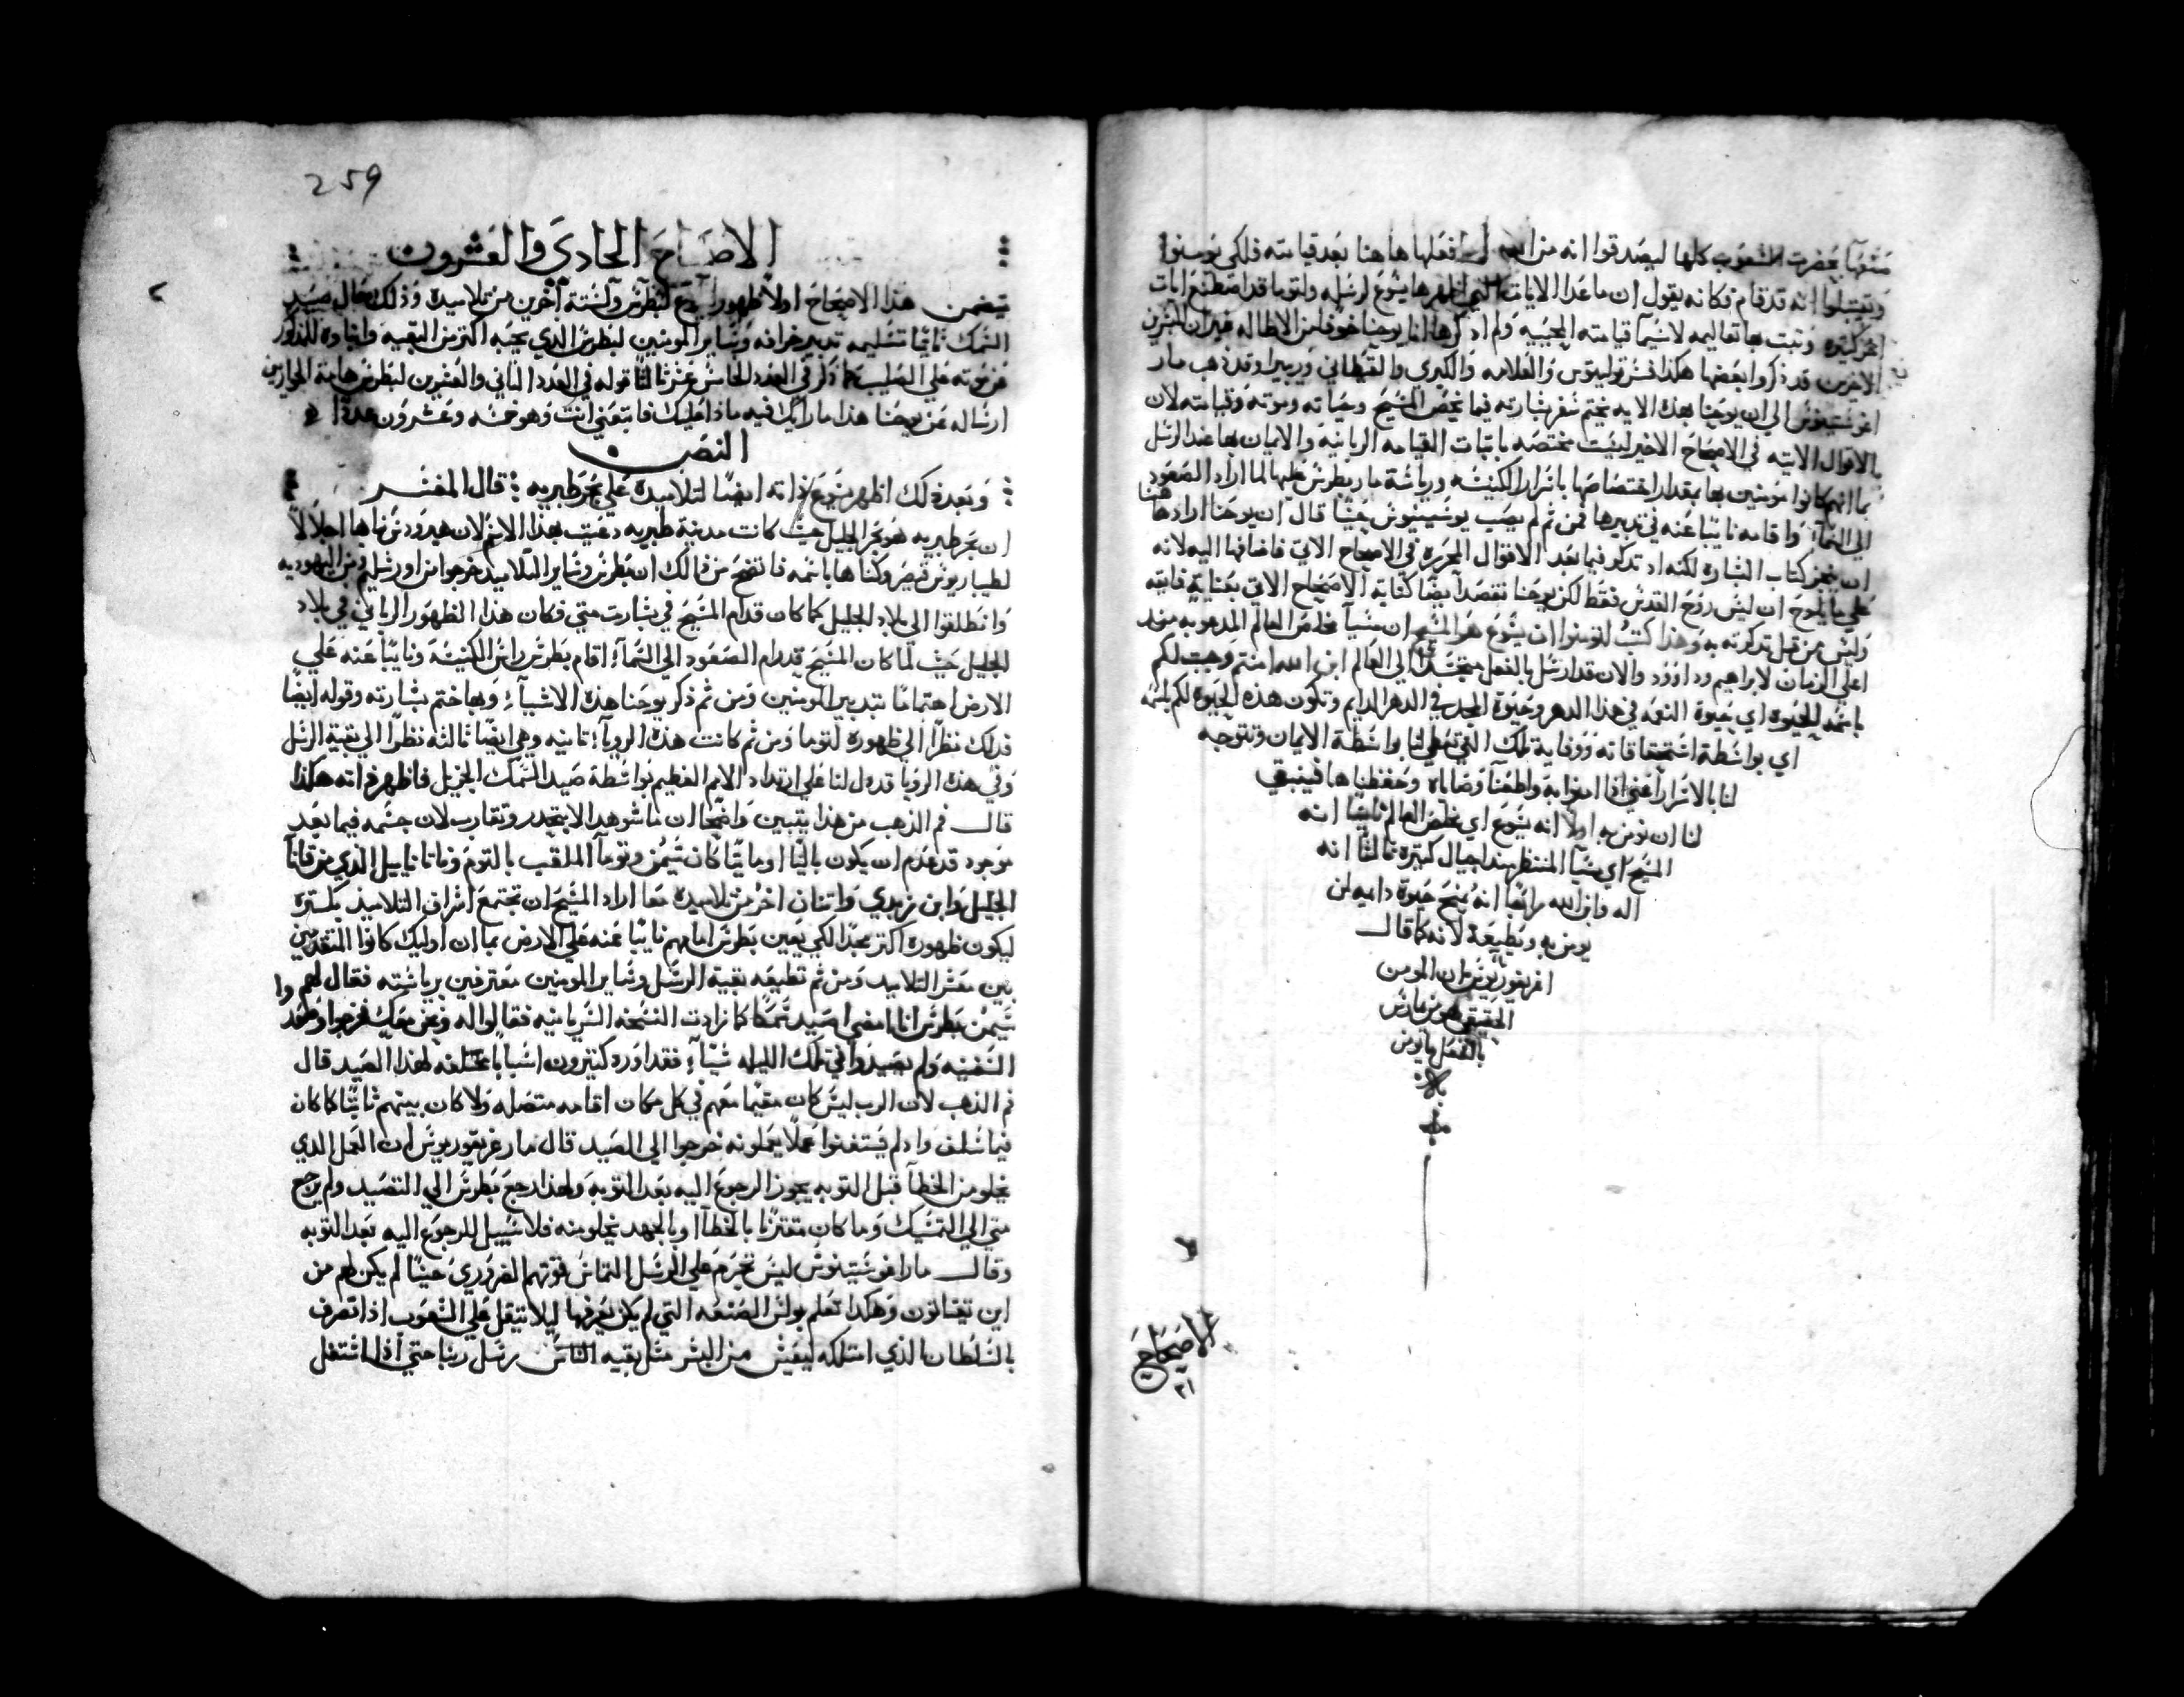 صنعها بحضرت الشعوب كلها ليصدقوا انه من الله فعلها هاهنا بعد قيامته فلكي يومنوا
ويقبلوا انه قد قام فكانه يقول ان ماعدا الايات التي اظهرها يشوع لرسله ولتوما قد اصطنع ايات
اخر كثيره وثبت بها تعاليمه لاسيما قيامته العجيبه ولم اذكرها انا يوحنا خوفا من الاطاله غير ان المبشرين
الاخرين قد ذكروا بعضها هكذا فسر توليتوس والعلامه والكبري وريبيرا وقد ذهب مار
اغوستينوس الي ان يوحنا بهذه الايه يختم سفر بشارته فيما يخص المسيح وحياته وموته وقيامته لان
الاقوال الاتيه في الاصحاح الاخير ليست مختصه باثبات القيامه الربانيه والايمان بها عند الرسل
بما انهم كانوا مومنين بها بمقدار اختصاصها باسرار الكنيسه ورياسة مار بطرس عليها لما اراد الصعود
الي السما واقامه نائبا عنه في تدبيرها فمن ثم لم يصب يوسينيوش حيثما قال ان يوحنا اراد هاهنا
ان ينجز كتاب البشاره لكنه اد تذكر فيما بعد الاقوال المحرره في الاصحاح الاتي فاضافها اليه لانه
علي ما يلوح ان ليس روح القدس فقط لكن يوحنا نقصد ايضا كتابة الاصحاح الاتي بعناية فايقه
وليس من قبل تذكرته به وهذا كتبت لتومنوا ان يشوع هو المسيح ان مسيا مخلص العالم المدعو به منذ
اعلي الزمان لابراهيم وداوود والان قد ارسل بالفعل متجسدا الي العالم ابن الله امنتم وجبت لكم
باسمه الحيوة اي بحيوة النعمه في هذا الدهر وحيوة المجد في الدهر الدايم وتكون هذه الحيوة لكم باسمه
اي بواسطة استحقاقاته ووفاية تلك التي تعطي لنا بواسطة الايمان وتتوجه
لنا بالاسرار اعني اذا امنوا به واطعنا وصاياه وحفظناها فينبغي
لنا ان نومن به اولا انه يشوع اي مخلص العالم ثانيا انه
المسيح اي مسيا المنتظر منذ اجيال كثيره ثالثا انه
اله وابن الله رابعا انه يمنح حيوة داميه لمن
يومن به ويطيعه لانه كما قال
اغريغوريوس ان المومن
الحقيقي هو من مارس
بالفعل ما يومن
به
الاصحاح
٢١
259
الاصحاح الحادي والعشرون
يتضمن هذا الاصحاح اولا ظهور يسوع لبطرس ولستة اخرين من تلاميده وذلك حال صيد
السمك ثانيا تسليمه تدبير خرافه وساير المومنين لبطرس الدي يحبه اكثر من البقيه وانباوه المذكور
عن موته علي الصليب كما ذكر في العدد الخامس عشر ثالثا قوله في العدد الثاني والعشرين لبطرس
ارساله عن يوحنا هذا ما رايك فيه ماذا عليك فاتبعني انت وهو خمسه وعشرون عددا
النص
وبعد ذلك اظهر يشوع ذاته ايضا لتلاميده علي بحر طبريه قال المفسر
ان بحر طبريه هو بحر الجليل حيث كانت مدينة طبريه دعيت بهذا الاسم لان هيرودس بناها اجلالا
لطيباريوس قيصر وكناها باسمه فاتضح من ذالك ان بطرس وساير التلاميد خرجوا من اورشليم ومن اليهوديه
وانطلقوا الي بلاد الجليل كما كان قدام المسيح في بشارت متي فكان هذا الظهور الرباني في بلاد
الجليل حيث لما كان المسيح قد رام الصعود الي السما اقام بطرس راس الكنيسه ونايبا عنه علي
الارض اهتماما بتدبير المومنين ومن ثم ذكر يوحنا هذه الاشيا وبها ختم بشارته وقوله ايضا
فذلك نظرا الي ظهوره لتوما ومن ثم كانت هذه الرويا ثانيه وهي ايضا ثالثه نظرا الي بقية الرسل
وفي هذه الرويا قد دل لنا علي ارتداد الامم العظيم بواسطة صيد السمك الجزيل فاظهر ذاته هكذا
قال فم الذهب من هذا يتبين واضحا ان ما شوهد الا بتحدر وتقارب لان جسمه فيما بعد
موجود قد عدم ان يكون باليا او مايتا كان شمعون وتوما الملقب بالتوم وناتانابيل الذي من قانا
الجليل وابن زبدي واتنان اخر من تلاميده معا اراد المسيح ان تجتمع اشراف التلاميد بكثره
ليكون ظهوره اكثر مجدا لكي يعين بطرس امامهم نايبا عنه علي الارض بما ان اوليك كانوا المتقدمين
بين معشر التلاميد ومن ثم تطيعه بقية الرسل وساير المومنين معترفين برياسته فقال لهم
شيمعن بطرس انا امضي اصيد سمكا كما زادت النسخه السريانيه فقالوا له ونحن معك فخرجوا وصعدوا
السفينه ولم يصيدوا في تلك الليله شيا فقد اورد كثيرون اسبابا مختلفه لهذا الصيد قال
فم الذهب لان الرب ليس كان مقيما معهم في كل مكان اقامه متصله ولا كان بينهم ثابتا كما كان
فيما سلف واد لم يستغنوا عملا يعملونه خرجوا الي الصيد قال مار غريغوريوس ان العمل الدي
يخلو من الخطا قبل التوبه يجوز الرجوع اليه بعد التوبه ولهذا رجع بطرس الي التصيد ولم يرجع
متي الي التمسك وما كان مقترنا بالخطا او بالجهد يخلو منه فلا سبيل للرجوع اليه بعد التوبه
وقال مار اغوستينوس ليس تحرم علي الرسل التماس قوتهم الضروري حيثما لم يكن لهم من
اين يقتاتون وهكذا تعلم بولس الصنعه التي لم يكن يعرفها ليلا يتقل علي الشعوب اذا تصرف
بالسلطان الذي امتلكه ليعيش من البشر مثل بقيه الناس رسل ربنا حتي اذا اشتغل